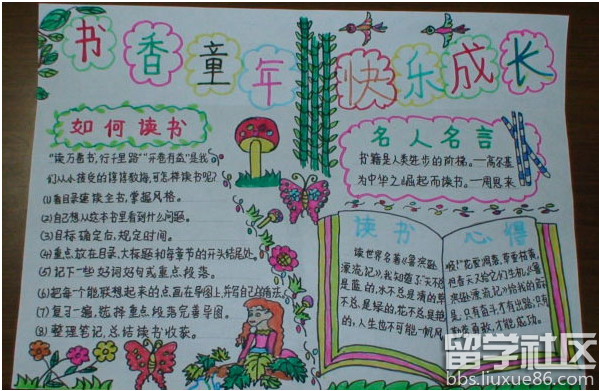 书香童年 快乐成长
如何读书
"读万卷书,行千里路""开卷有益"是我
们从小接受的谆谆教诲,可怎样读书呢?
(1)看目录速读全书,掌握风格。
(2)自己想从这本书里看到什么问题。
(3)目标确定后,规定时间。
(4)重点放在目录、大标题和每章节的开头结尾处。
(5)记下一些好词好句或重点段落。
(6)把每个能联想起来的点画在导图上,并写自己的看法。
(7)复习一遍,选择重点段落完善导图。
(8)整理笔记,总结读书收获。
名人名言
书籍是人类进步的阶梯。——高尔基
为中华之崛起而读书。——周恩来
读书 心得
读世界名著《鲁宾逊
漂流记》,我知道了:天不总
是蓝的,水不总是清的,草
不总是绿的,花不总是艳
的,人生也不可能一帆风
宾逊漂流记》给我的
是,只有奋斗,才有出路,只有
勇敢,才能成功。
留学社区
bbs.liuxue86.com